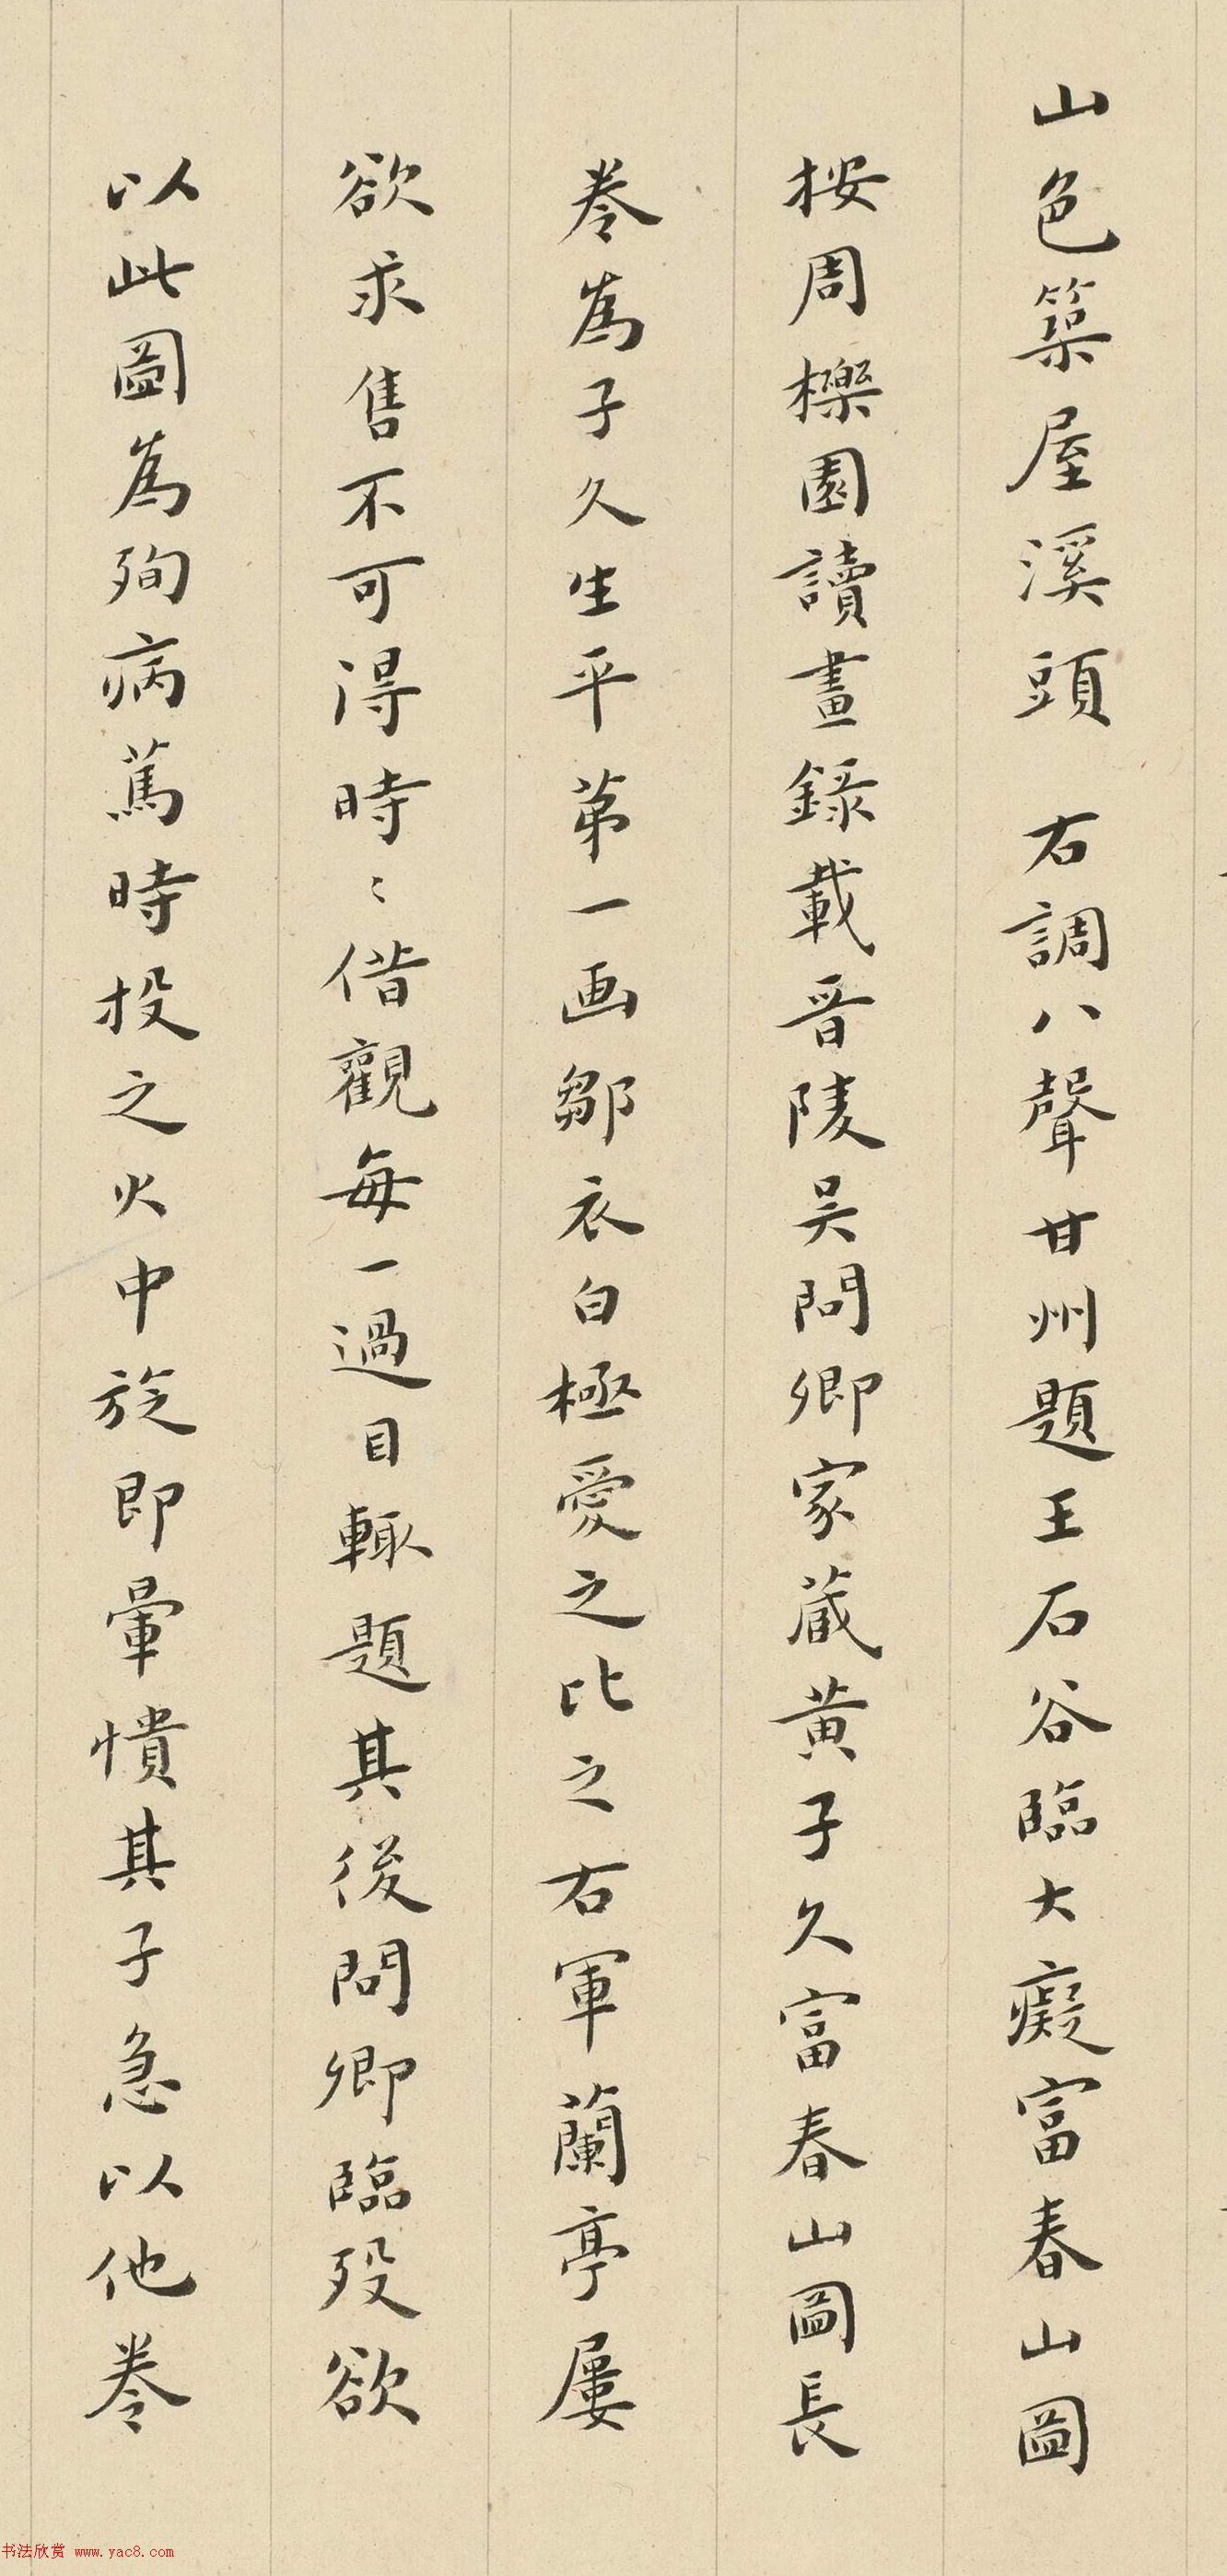 山色築屋溪頭 右調八聲甘州題王石谷臨大癡富春山圖
桉周櫟園讀畫錄載晉陵吳問卿家藏黃子久富春山圖長
卷為子久生平第一画鄒衣白極愛之比之右軍蘭亭屢
欲求售不可得時〻借觀每一過目輒題其後問卿臨歿欲
以此圖為殉病篤時投之火中旋即暈憒其子急以他卷
书法欣赏 www.yac8.com